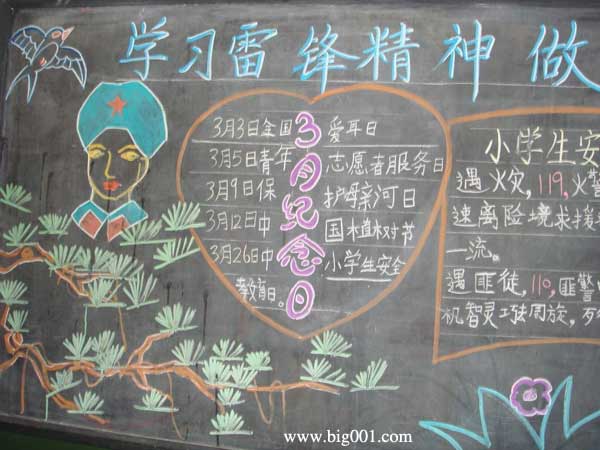 学习雷锋精神 做
3月纪念日
3月3日全国爱耳日
3月5日青年志愿者服务日
3月9日保护母亲河日
3月12日中国植树节
3月26日中小学生安全
教育日.
小学生安
遇火灾,119,火警
速离险境求援
一流。
遇匪徒,110,匪警
机智灵巧法周旋,
www.big001.com